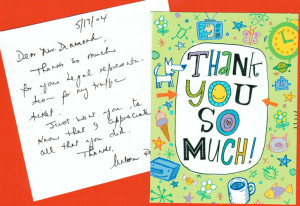 5/17/04
Dear Mr. Drummond,
Thanks so much
for your legal representa-
tion for my traffic
ticket.
Just want you to
know that I appreciate
all that you did.
Thanks,
THANK
YOU
SO
MUCH!